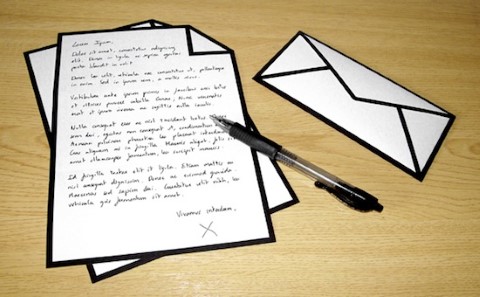 Lorem Ipsum,
Dolor sit amet, consectetur adipiscing
elit. Donec in ligula ac sapien
porta blandit in velit.
Donec leo velit, vehicula nec consectetur et, pellentesque
in enim. Sed in ipsum sem, a mattis nisi.
Vestibulum ante ipsum primis in faucibus orci luctus
et ultrices posuere cubilia Curae; Nunc venenatis
erat et ipsum viverra nec sagittis nulla iaculis.
Nulla consequat eros eu nisl tincidunt luctus
sem dui, egestas non consequat et, condimentum
Aenean pulvinar pharetra leo placerat interdum.
Cras aliquam mi in fringilla. Maecenas aliquet, felis
amet ullamcorper fermentum, leo suscipit
Id fringilla tortor elit et ligula. Etiam mattis ex
nisi consequat dignissim. Donec eu euismod gravida
Maecenas sed sapien dui. Curabitur elit nibh,
vehicula quis fermentum sit amet.
Vivamus interdum,
X